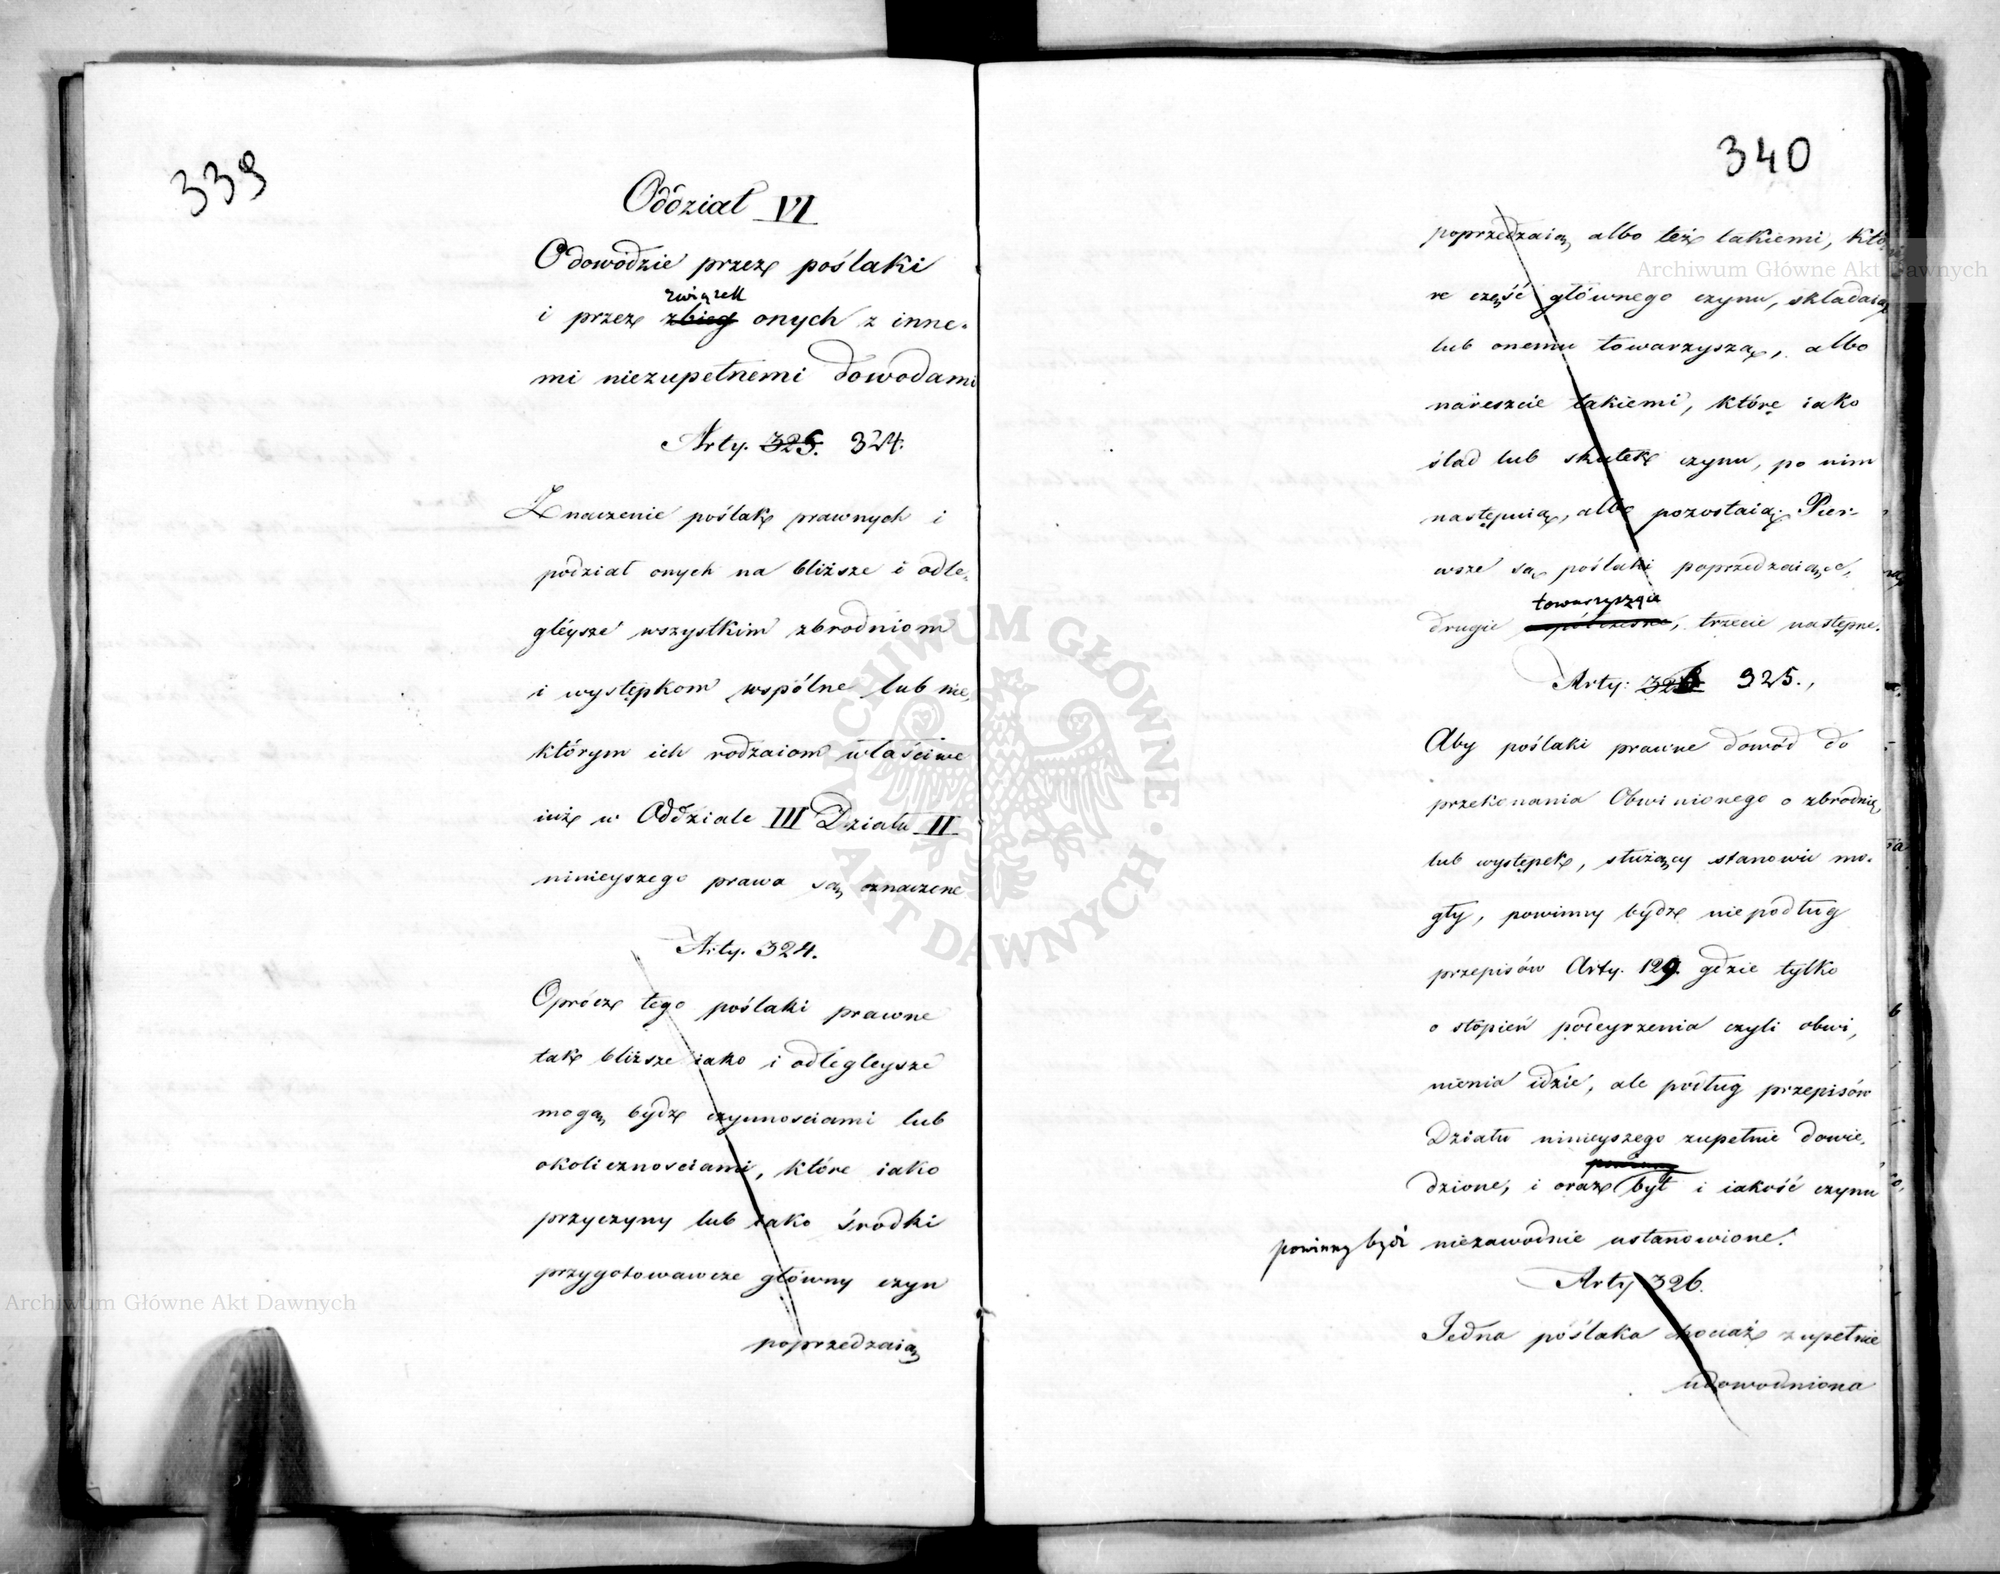 339
Oddział VI
O dowodzie przez poślaki
związek
i przez zbieg onych z inne-
mi niezupełnemi dowodami
Arty. 325. 324.
Znaczenie poślak prawnych i
podział onych na bliższe i odle-
gleysze wszystkim zbrodniom
i występkom wspólne lub nie-
którym ich rodzaiom właściwe
iuż w Oddziale III Działu II
ninieyszego prawa są oznaczone
Arty. 324.
Oprócz tego poślaki prawne
tak bliższe iako i odlegleysze
mogą bydź czynnościami lub
okolicznościami, które iako
przyczyny lub iako środki
przygotowawcze główny czyn
poprzedzaią
340
poprzedzaią albo też takiemi, któ-
re część głównego czynu, składaią
lub onemu towarzyszą, albo
nareszcie takiemi, które iako
ślad lub skutek czynu, po nim
następuią, albo pozostaią. Pier-
wsze są poślaki poprzedzaiące,
towarzyszące
drugie współczesne, trzecie następne.
Arty: 326 325.
Aby poślaki prawne dowód do
przekonania Obwinionego o zbrodnię,
lub występek, służący stanowić mo-
gły, powinny bydź nie podług
przepisów Arty. 129. gdzie tylko
o stopień podeyrzenia czyli obwi-
nienia idzie, ale podług przepisów
Działu ninieyszego zupełnie dowie-
powinny
dzione, i oraz byt i iakość czynu
powinny bydź niezawodnie ustanowione.
Arty 326.
Jedna poślaka chociaż zupełnie
udowodniona
Archiwum Główne Akt Dawnych
Archiwum Główne Akt Dawnych
ARCHIWUM GŁÓWNE AKT DAWNYCH